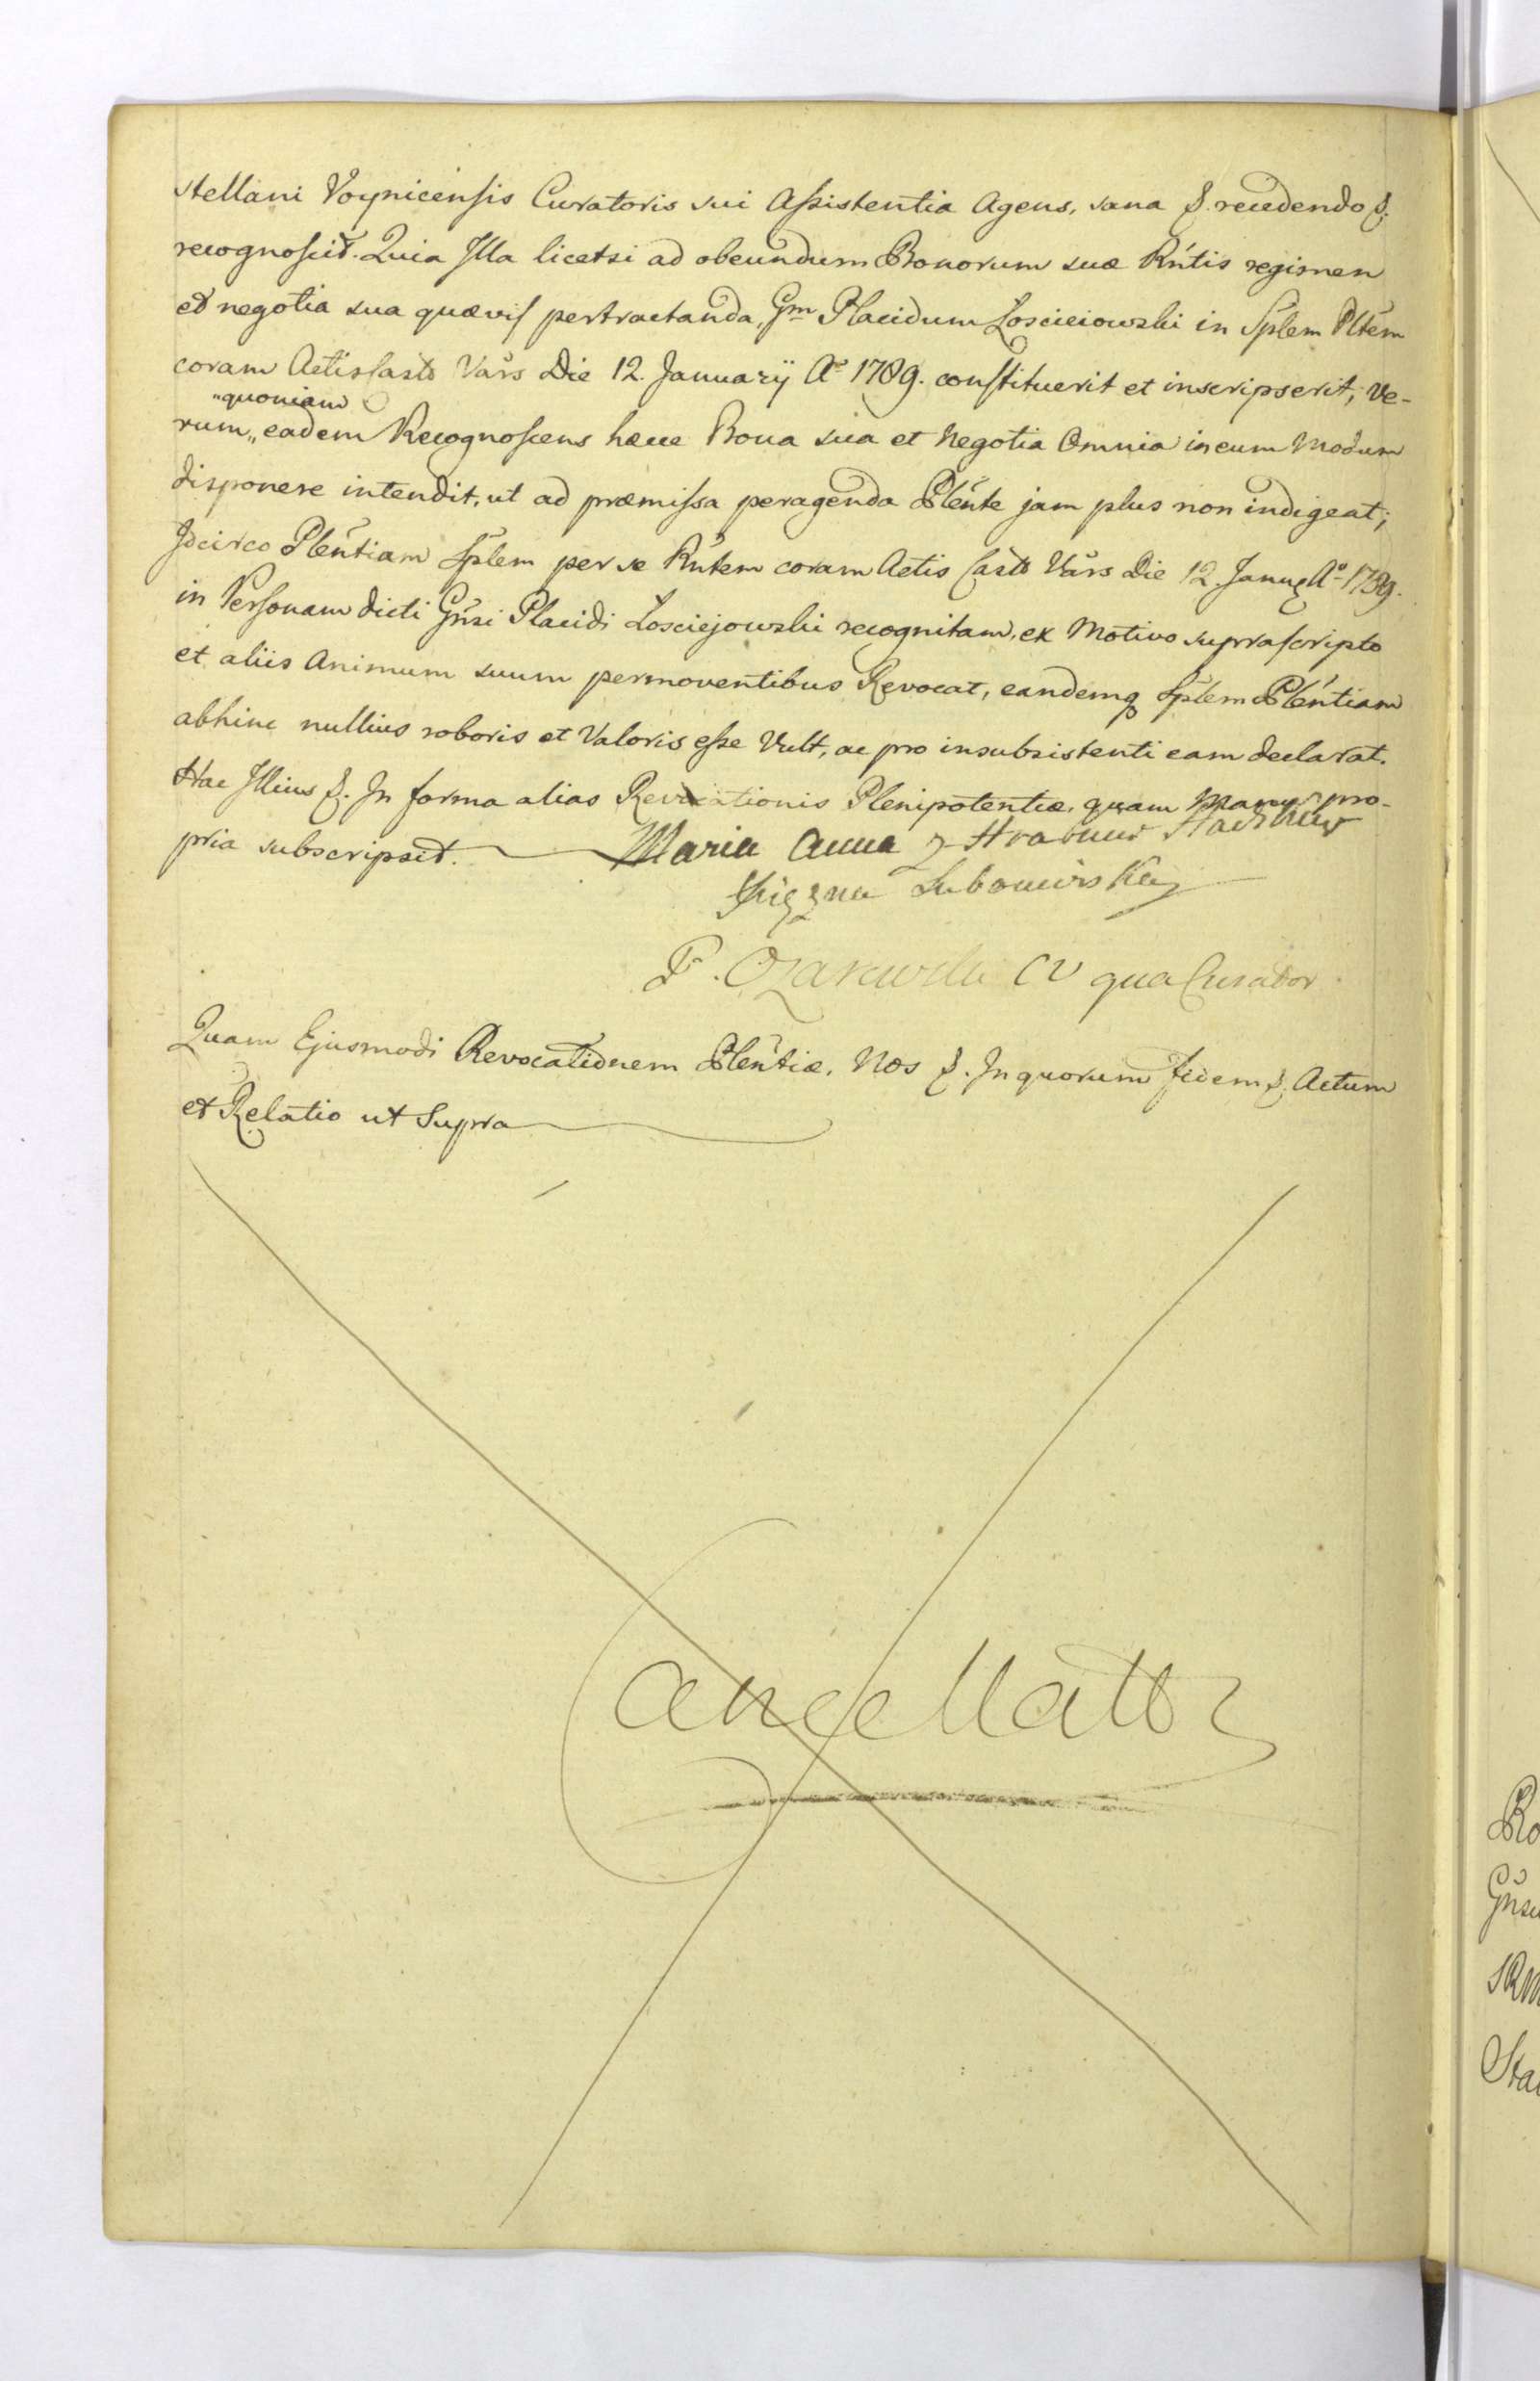 stellani Voynicensis Curatoris sui Assistentia Agens, sana &. recedendo &.
recognoscit. Quia Illa licetsi ad obeundum Bonorum suæ Rńtis regimen
et negotia sua quævis pertractanda, Gm Placidum Łosciciowski in Splem Pltem
coram Actis Castr Vars Die 12. Januarÿ Ao 1789. constituerit et inscripserit, Ve-
"quoniam
rum,, eadem Recognoscens hæce Bona sua et Negotia Omnia in eum Modum
disponere intendit, ut ad præmissa peragenda Plénte jam plus non indigeat;
Idcirco Pleńtiam Splem per se Rńtem coram Actis Castr Vars Die 12. Januę Ao 1789.
in Personam dicti Gńsi Placidi Łosciejowski recognitam, ex Motivo suprascripto
et aliis Animum suum permoventibus Revocat, eandemq Splem Pleńtiam
abhinc nullius roboris et Valoris esse Vult, ac pro insubsistenti eam declarat.
Hac Illius &. In forma alias Revocationis Plenipotentiæ, quam Manu pro-
pria subscripsit. Maria Anna z Hrabiuw Hadikuw
Xiężna Lubomirska
F. Ożarowski CV qua Curator
Quam Ejusmodi Revocationem Pleńtiæ. Nos &. In quorum fidem &. Actum
et Relatio ut Supra
Cancellatt
Ro
Gńsu
SRM
Sta